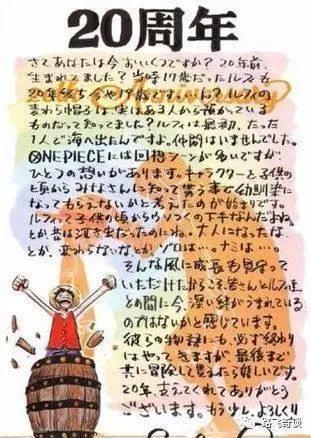 20周年
さてあなたは今おいくつですか? 20年前、
生まれてました? 当時17歳だったルフィも
20年経ち今や19歳です。…ん? ルフィの
麦わら帽子は実はある人から預かっている
ものだって知ってました? ルフィは最初、たった
1人で海へ出たんですよ。仲間はいませんでした。
ONE PIECEには回想シーンが多いですが、
ひとつの想いがあります。キャラクターを子供の
頃からみなさんに知って貰う事で幼馴染に
なってもらえないかと考えたのが始まりです。
ルフィって子供の頃からウソつくの下手なんだよね。
とか昔は泣き虫だったのにね。大人になったな
とか、変わらないなとか ゾロは…。ナミは…。
そんな風に成長も見守って
いただけたからこそ皆さんとルフィ達
との間に今、深い絆がうまれている
のではないかと感じています。
彼らの物語にも、必ず終わり
はやってきますが、最後まで
共に冒険して貰えたら嬉しいです。
20年、支えてくれてありがとう
ございます。もう少し、よろしく!!